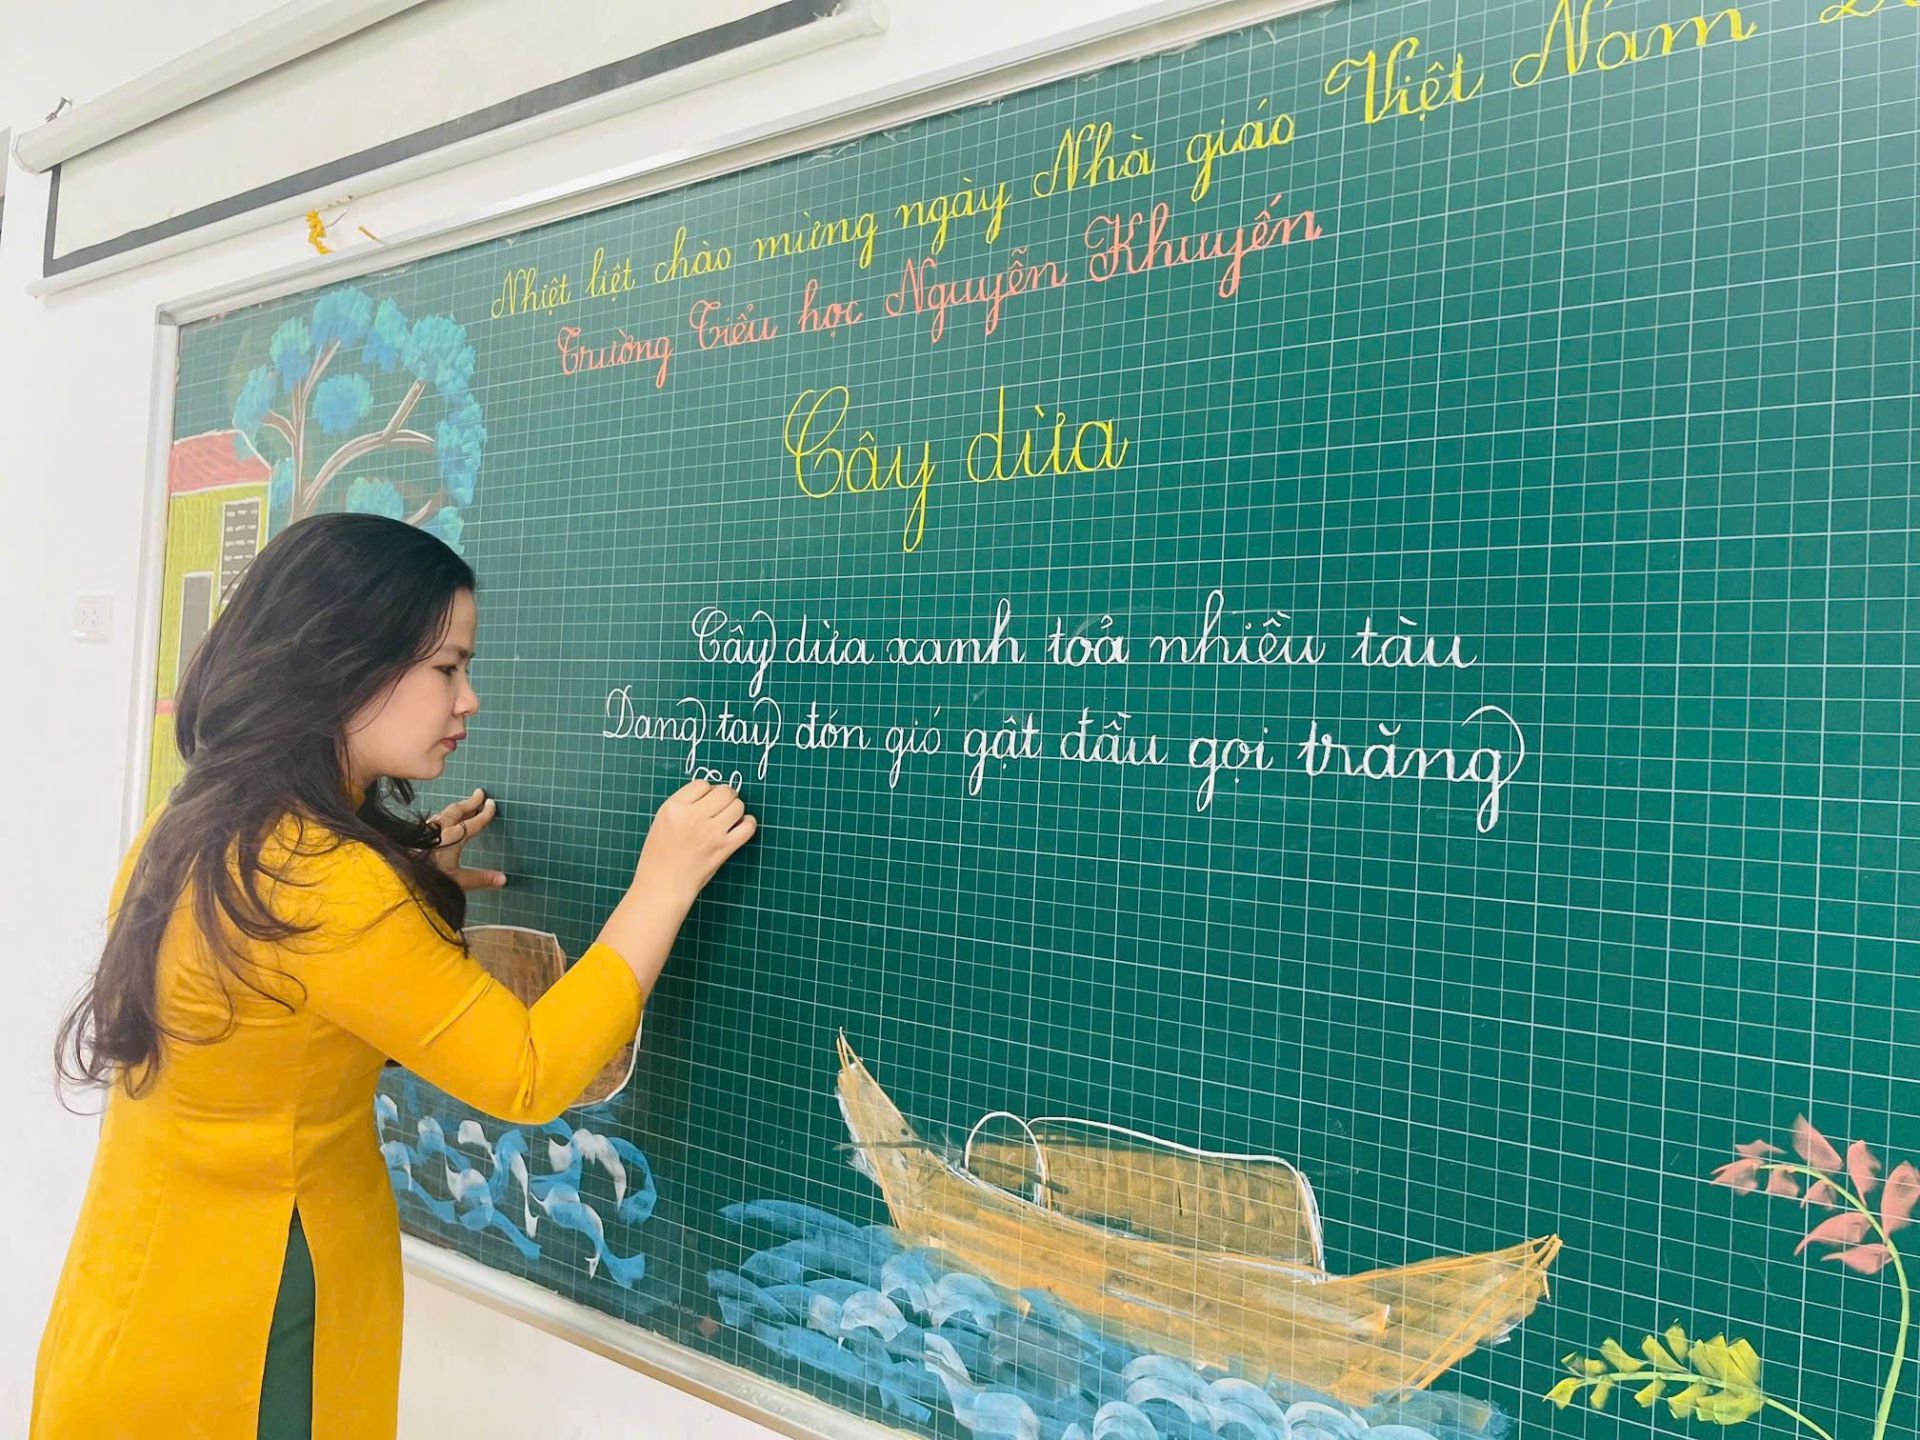 Nhiệt liệt chào mừng ngày Nhà giáo Việt Nam
Trường Tiểu học Nguyễn Khuyến
Cây dừa
Cây dừa xanh toả nhiều tàu
Dang tay đón gió gật đầu gọi trăng